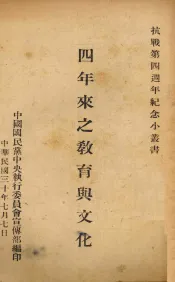 抗戰第四週年紀念小叢書
四年來之教育與文化
中國國民黨中央執行委員會宣傳部編印
中華民國三十年七月七日